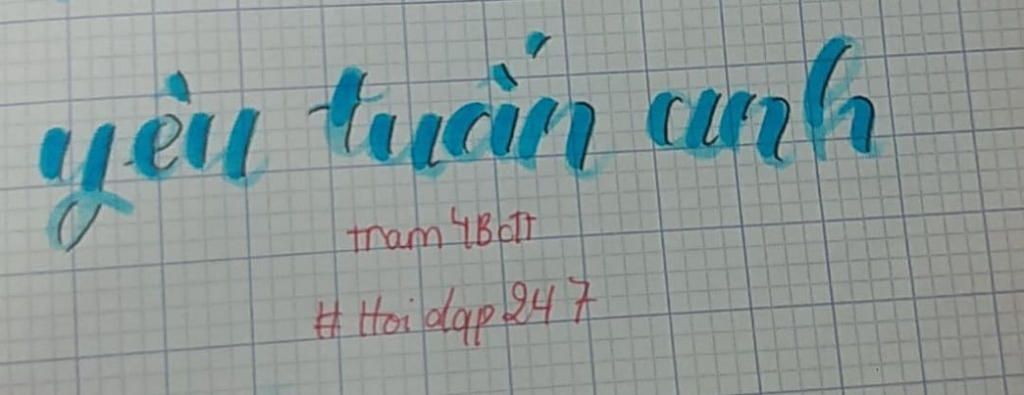 yêu tuấn anh
tram4Bctt
#Hoidap247